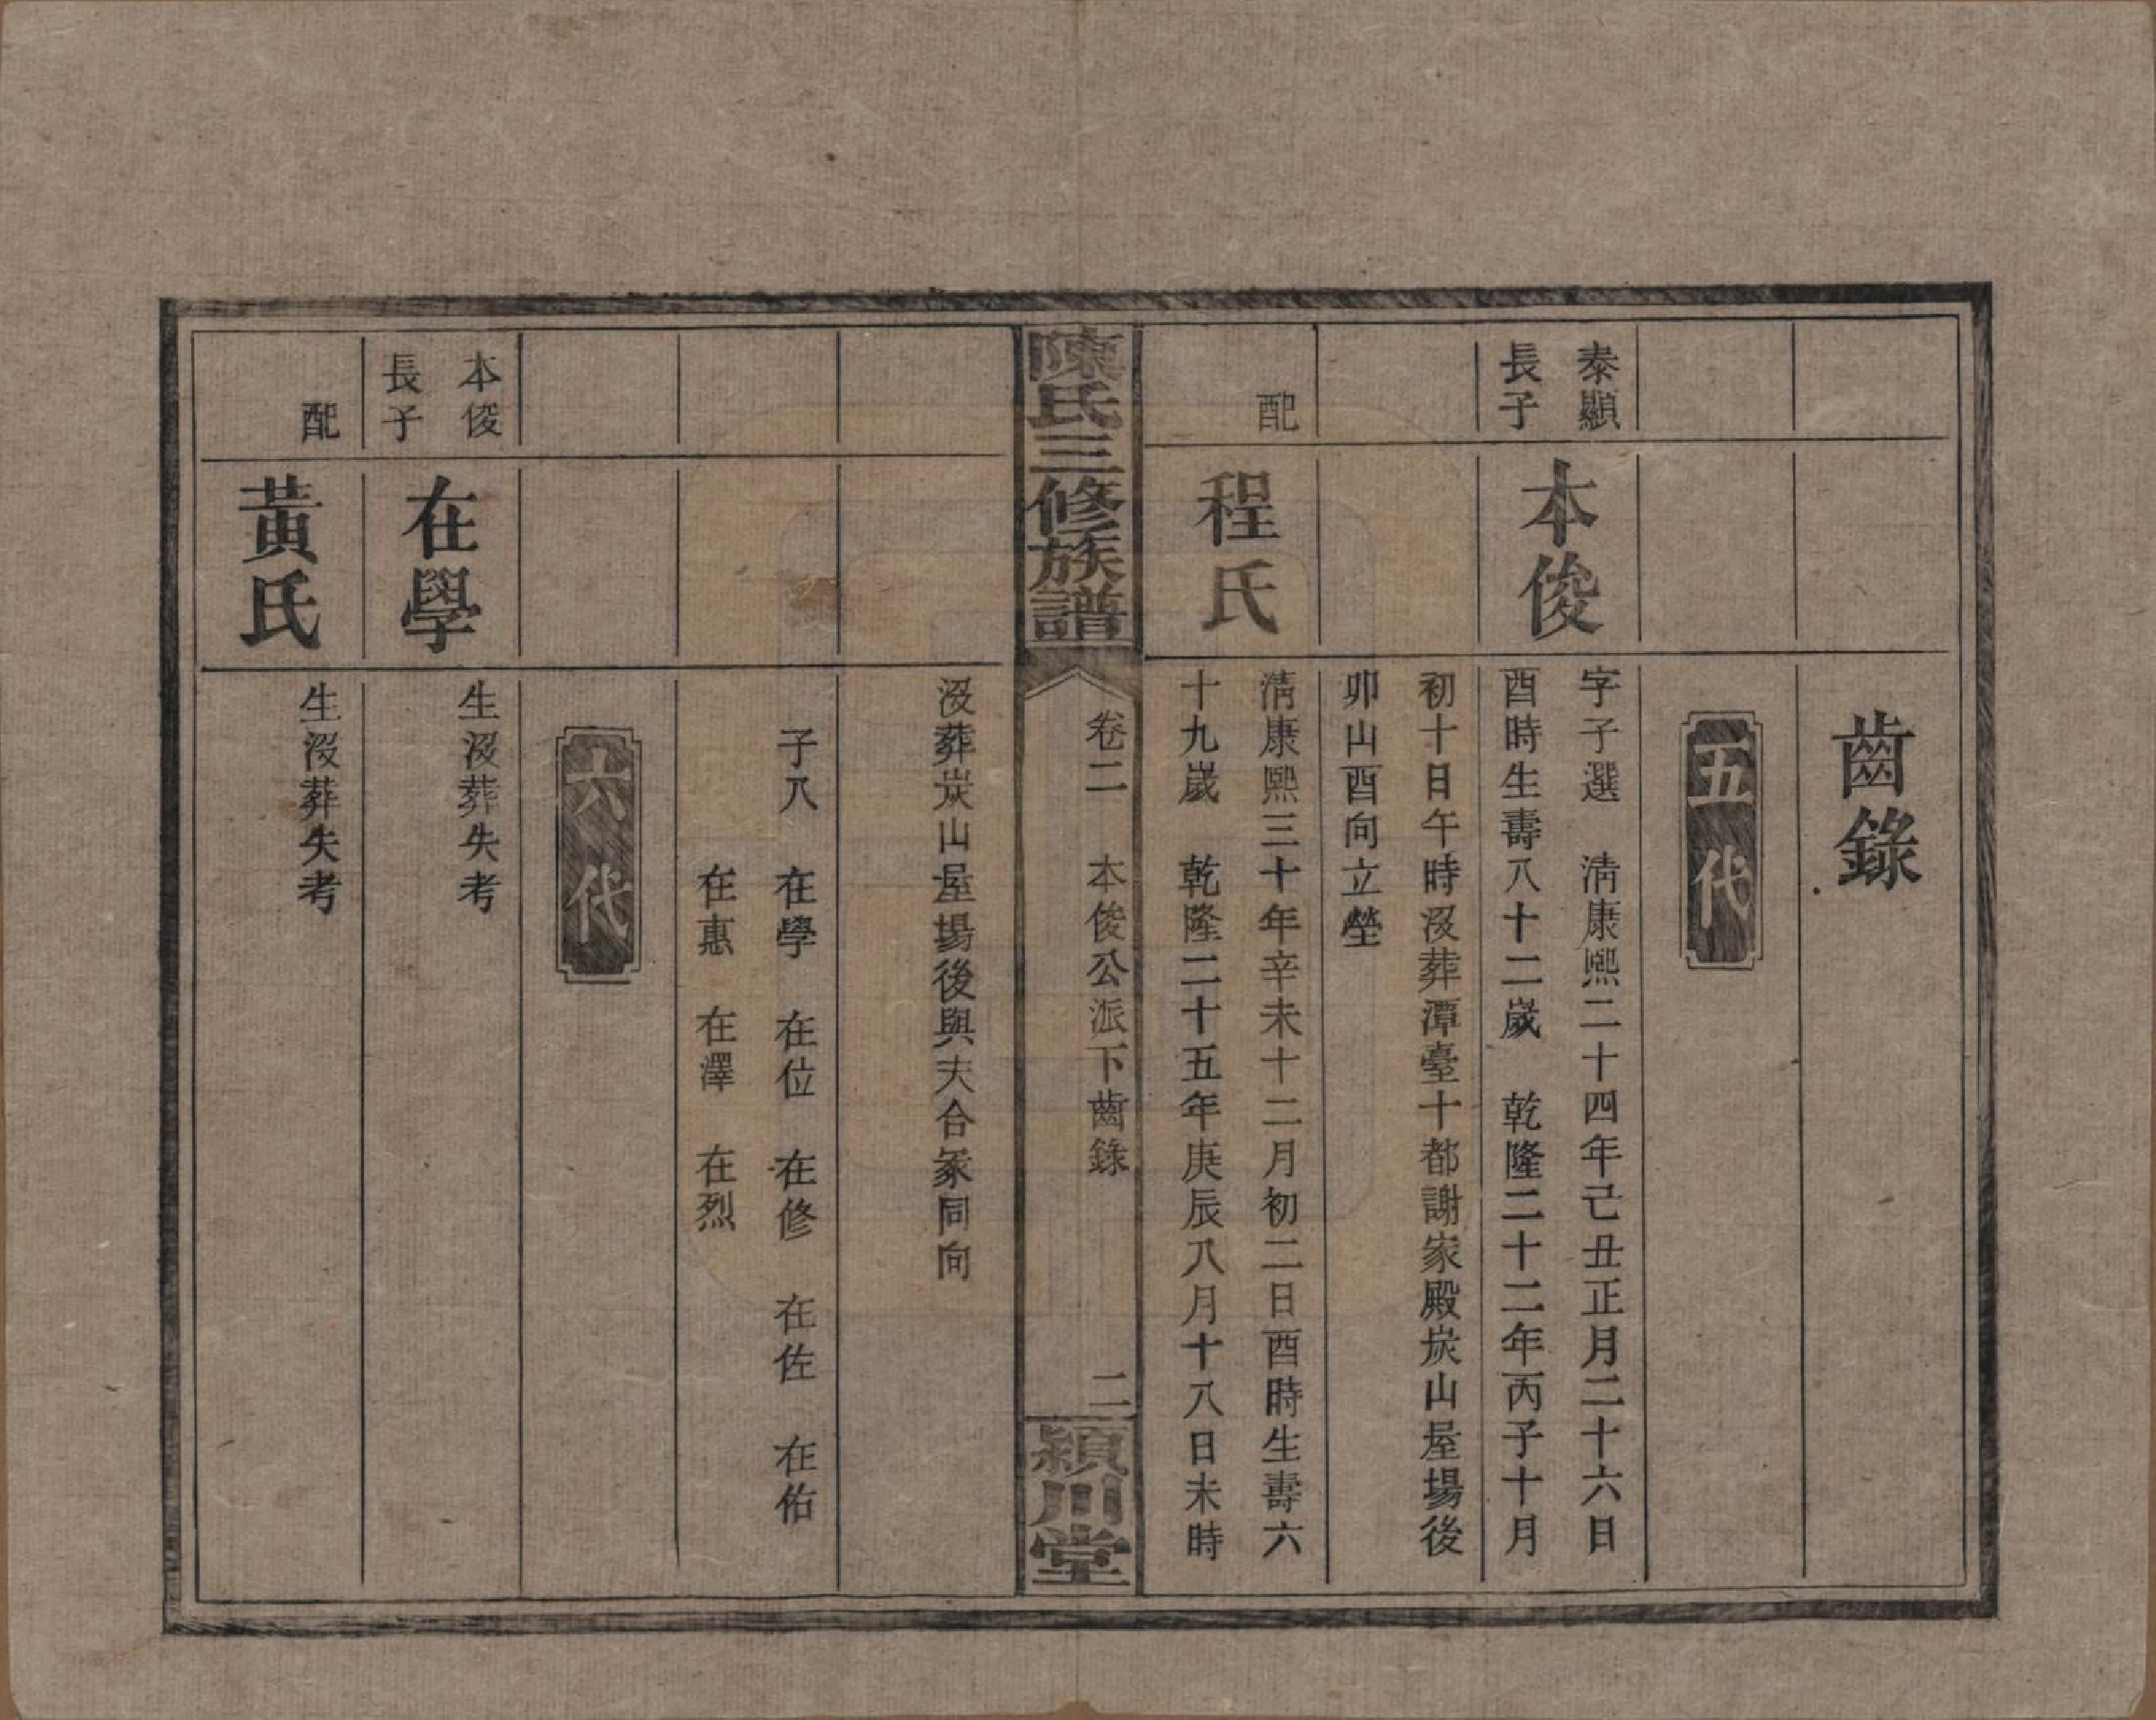 齒錄
五代
泰顯
長子
本俊
字子選　清康熙二十四年己丑正月二十六日
酉時生壽八十二歲　乾隆二十二年丙子十月
初十日午時沒葬潭臺十都謝家殿炭山屋場後
卯山酉向立塋
配
程氏
清康熙三十年辛未十二月初二日酉時生壽六
十九歲　乾隆二十五年庚辰八月十八日未時
陳氏三修族譜
卷二　本俊公派下齒錄　二
潁川堂
沒葬炭山屋場後與夫合冢同向
子八　在學　在位　在修　在佐　在佑
在惠　在澤　在烈
六代
本俊
長子
在學
生沒葬失考
配
黃氏
生沒葬失考